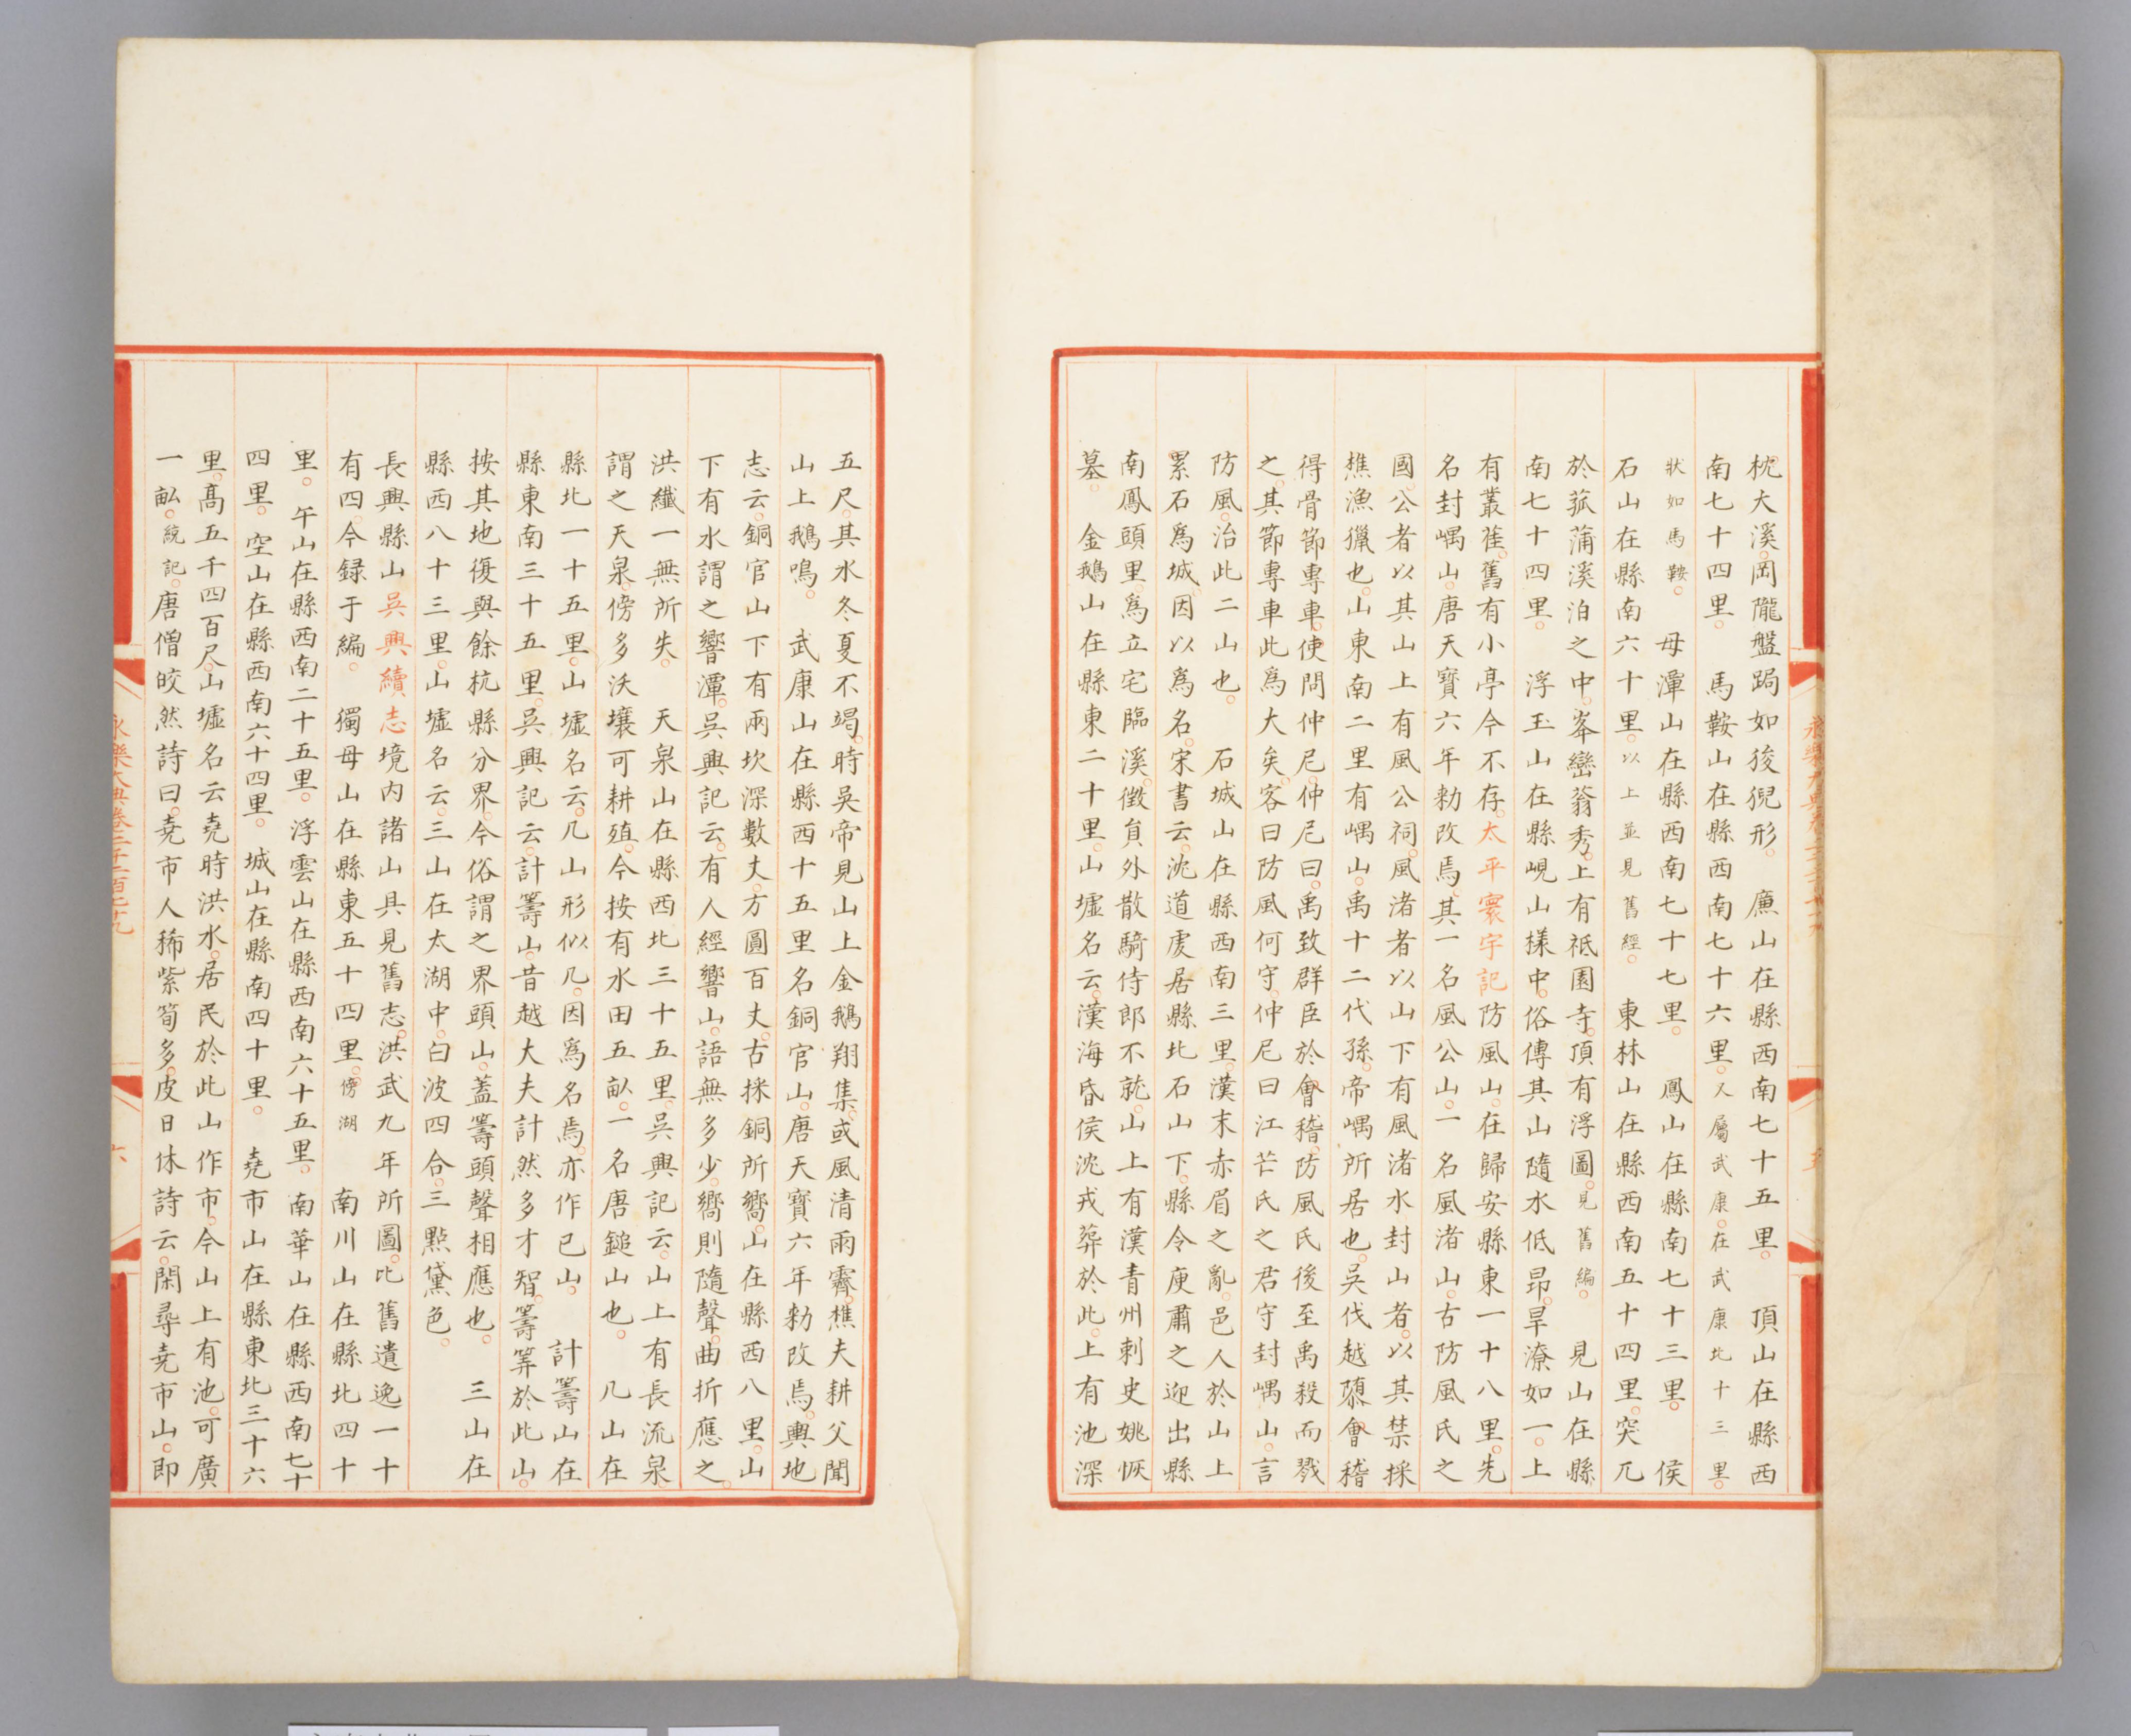 枕大溪岡隴盤跼如後猊形　廡山在縣西南七十五里　頂山在縣西
南七十四里　馬鞍山在縣西南七十六里人屬武康在武康北十三里
狀如馬鞍　毋渾山在縣西南七十七里　鳳山在縣南七十三里　侯
石山在縣南六十里以上並見舊經　東林山在縣西南五十四里突兀
於菰蒲溪泊之中峯巒蓊秀上有祗園寺頂有浮圖見舊編　見山在縣
南七十四里　浮玉山在縣峴山樣中俗傳其山隨水低昻旱潦如一上
有叢萑舊有小亭今不存太平寰宇記防風山在歸安縣東一十八里先
名封嵎山唐天寶六年勑改焉其一名風公山一名風渚山古防風氏之
國公者以其山上有風公祠風渚者以山下有風渚水封山者以其禁採
樵漁獵也山東南二里有嵎山禹十二代孫帝嵎所居也吳伐越隳會稽
得骨節專車使問仲尼仲尼曰禹致群臣於會稽防風氏後至禹殺而戮
之其節專車此爲大矣客曰防風何守仲尼曰江芒氏之君守封嵎山言
防風治此二山也　石城山在縣西南三里漢末赤眉之亂邑人於山上
累石爲城因以爲名宋書云沈道虔居縣北石山下縣令庾肅之迎出縣
南鳳頭里爲立宅臨溪徵負外散騎侍郎不就山上有漢青州刺史姚恢
墓　金鵝山在縣東二十里山墟名云漢海昏侯沈戎葬於此上有池深
五尺其水冬夏不竭時吳帝見山上金鵝翔集或風清雨霽樵夫耕父聞
山上鵝鳴　武康山在縣西十五里名銅官山唐天寶六年勑改焉輿地
志云銅官山下有兩坎深數丈方圓百丈古採銅所嚮山在縣西八里山
下有水謂之響潭吳興記云有人經響山語無多少嚮則隨聲曲折應之
洪纖一無所失　天泉山在縣西北三十五里吳興記云山上有長流泉
謂之天泉傍多沃壤可耕殖今按有水田五畝一名唐鎚山也　几山在
縣北一十五里山墟名云几山形似几因爲名焉亦作已山　計籌山在
縣東南三十五里吳興記云計籌山昔越大夫計然多才智籌筭於此山
按其地復與餘杭縣分界今俗謂之界頭山蓋籌頭聲相應也　三山在
縣西八十三里山墟名云三山在太湖中白波四合三點黛色
長興縣山吳興續志境内諸山具見舊志洪武九年所圖比舊遺逸一十
有四今録于編　獨母山在縣東五十四里傍湖　南川山在縣北四十
里　午山在縣西南二十五里　浮雲山在縣西南六十五里　南華山在縣西南七十
四里　空山在縣西南六十四里　城山在縣南四十里　堯市山在縣東北三十六
里高五千四百尺山墟名云堯時洪水居民於此山作市今山上有池可廣
一畝統記唐僧皎然詩曰堯市人稀紫筍多皮日休詩云閑尋堯市山即
永樂大典卷二千二百七十九
六